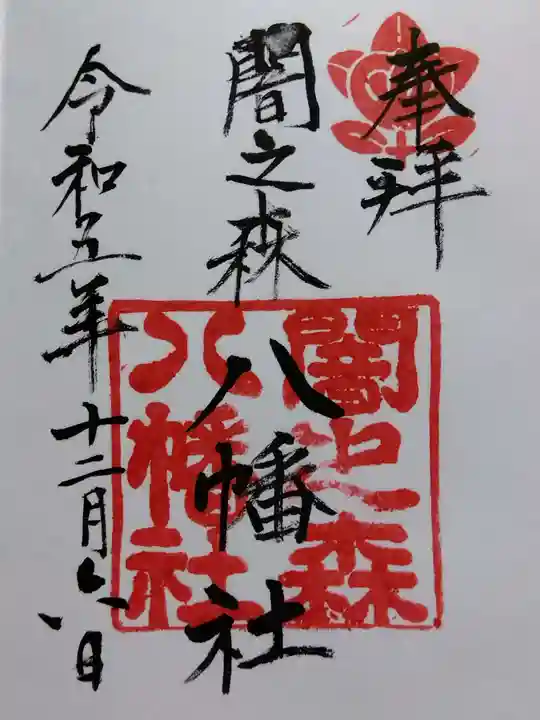 奉拜
闇之森八幡社
闇之森
八幡社
令和五年十二月六日